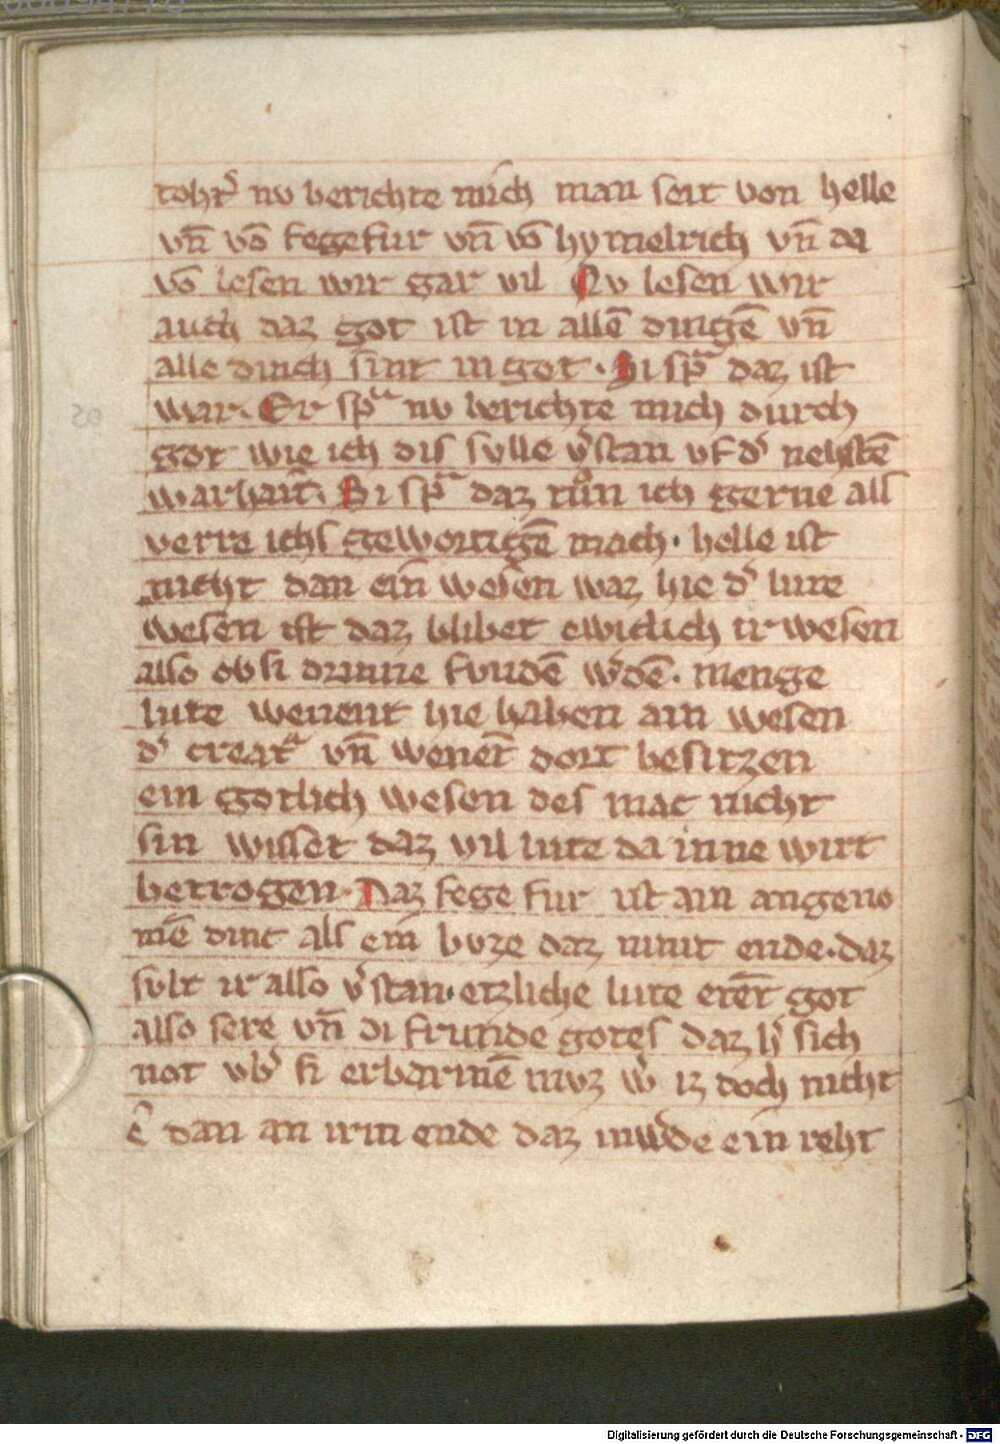 toht͛ nv berichte mich man seit von helle
vn̄ vō fegefur vn̄ vō hymelrich vn̄ da
vō lesen wir gar vil Nv lesen wir
auch daz got ist in allē dingē vn̄
alle dinch sint in got · Si spͣ daz ist
war · Er spͣ nv berichte mich durch
got wie ich dis svlle v͛stan vf d͛ nehstē
warhait̄ · Si spͣ daz tůn ich gerne als
verre ichs gewortigē mach · helle ist
nicht dan ein wesen waz hie d͛ lute
wesen ist daz blibet ewiclich ir wesen
also ob si drinne fundē w͛dē · menge
lute wenent hie haben ain wesen
d͛ creatͣ vn̄ wenēt dort besitzen
ein gotlich wesen des mac nicht
sin wisset daz vil lute da inne wirt
betrogen · Daz fege fur ist ain angeno
mē dinc als ein buze daz nimt ende · daz
svlt ir also v͛stan · etzliche lute erēt got
also sere vn̄ di frunde gotes daz h͛ sich
not vb͛ si erbarmē mvz w͛ iz doch nicht
e͛ dan an irm ende daz in w͛de ein reht
Digitalisierung gefördert durch die Deutsche Forschungsgemeinschaft - DFG